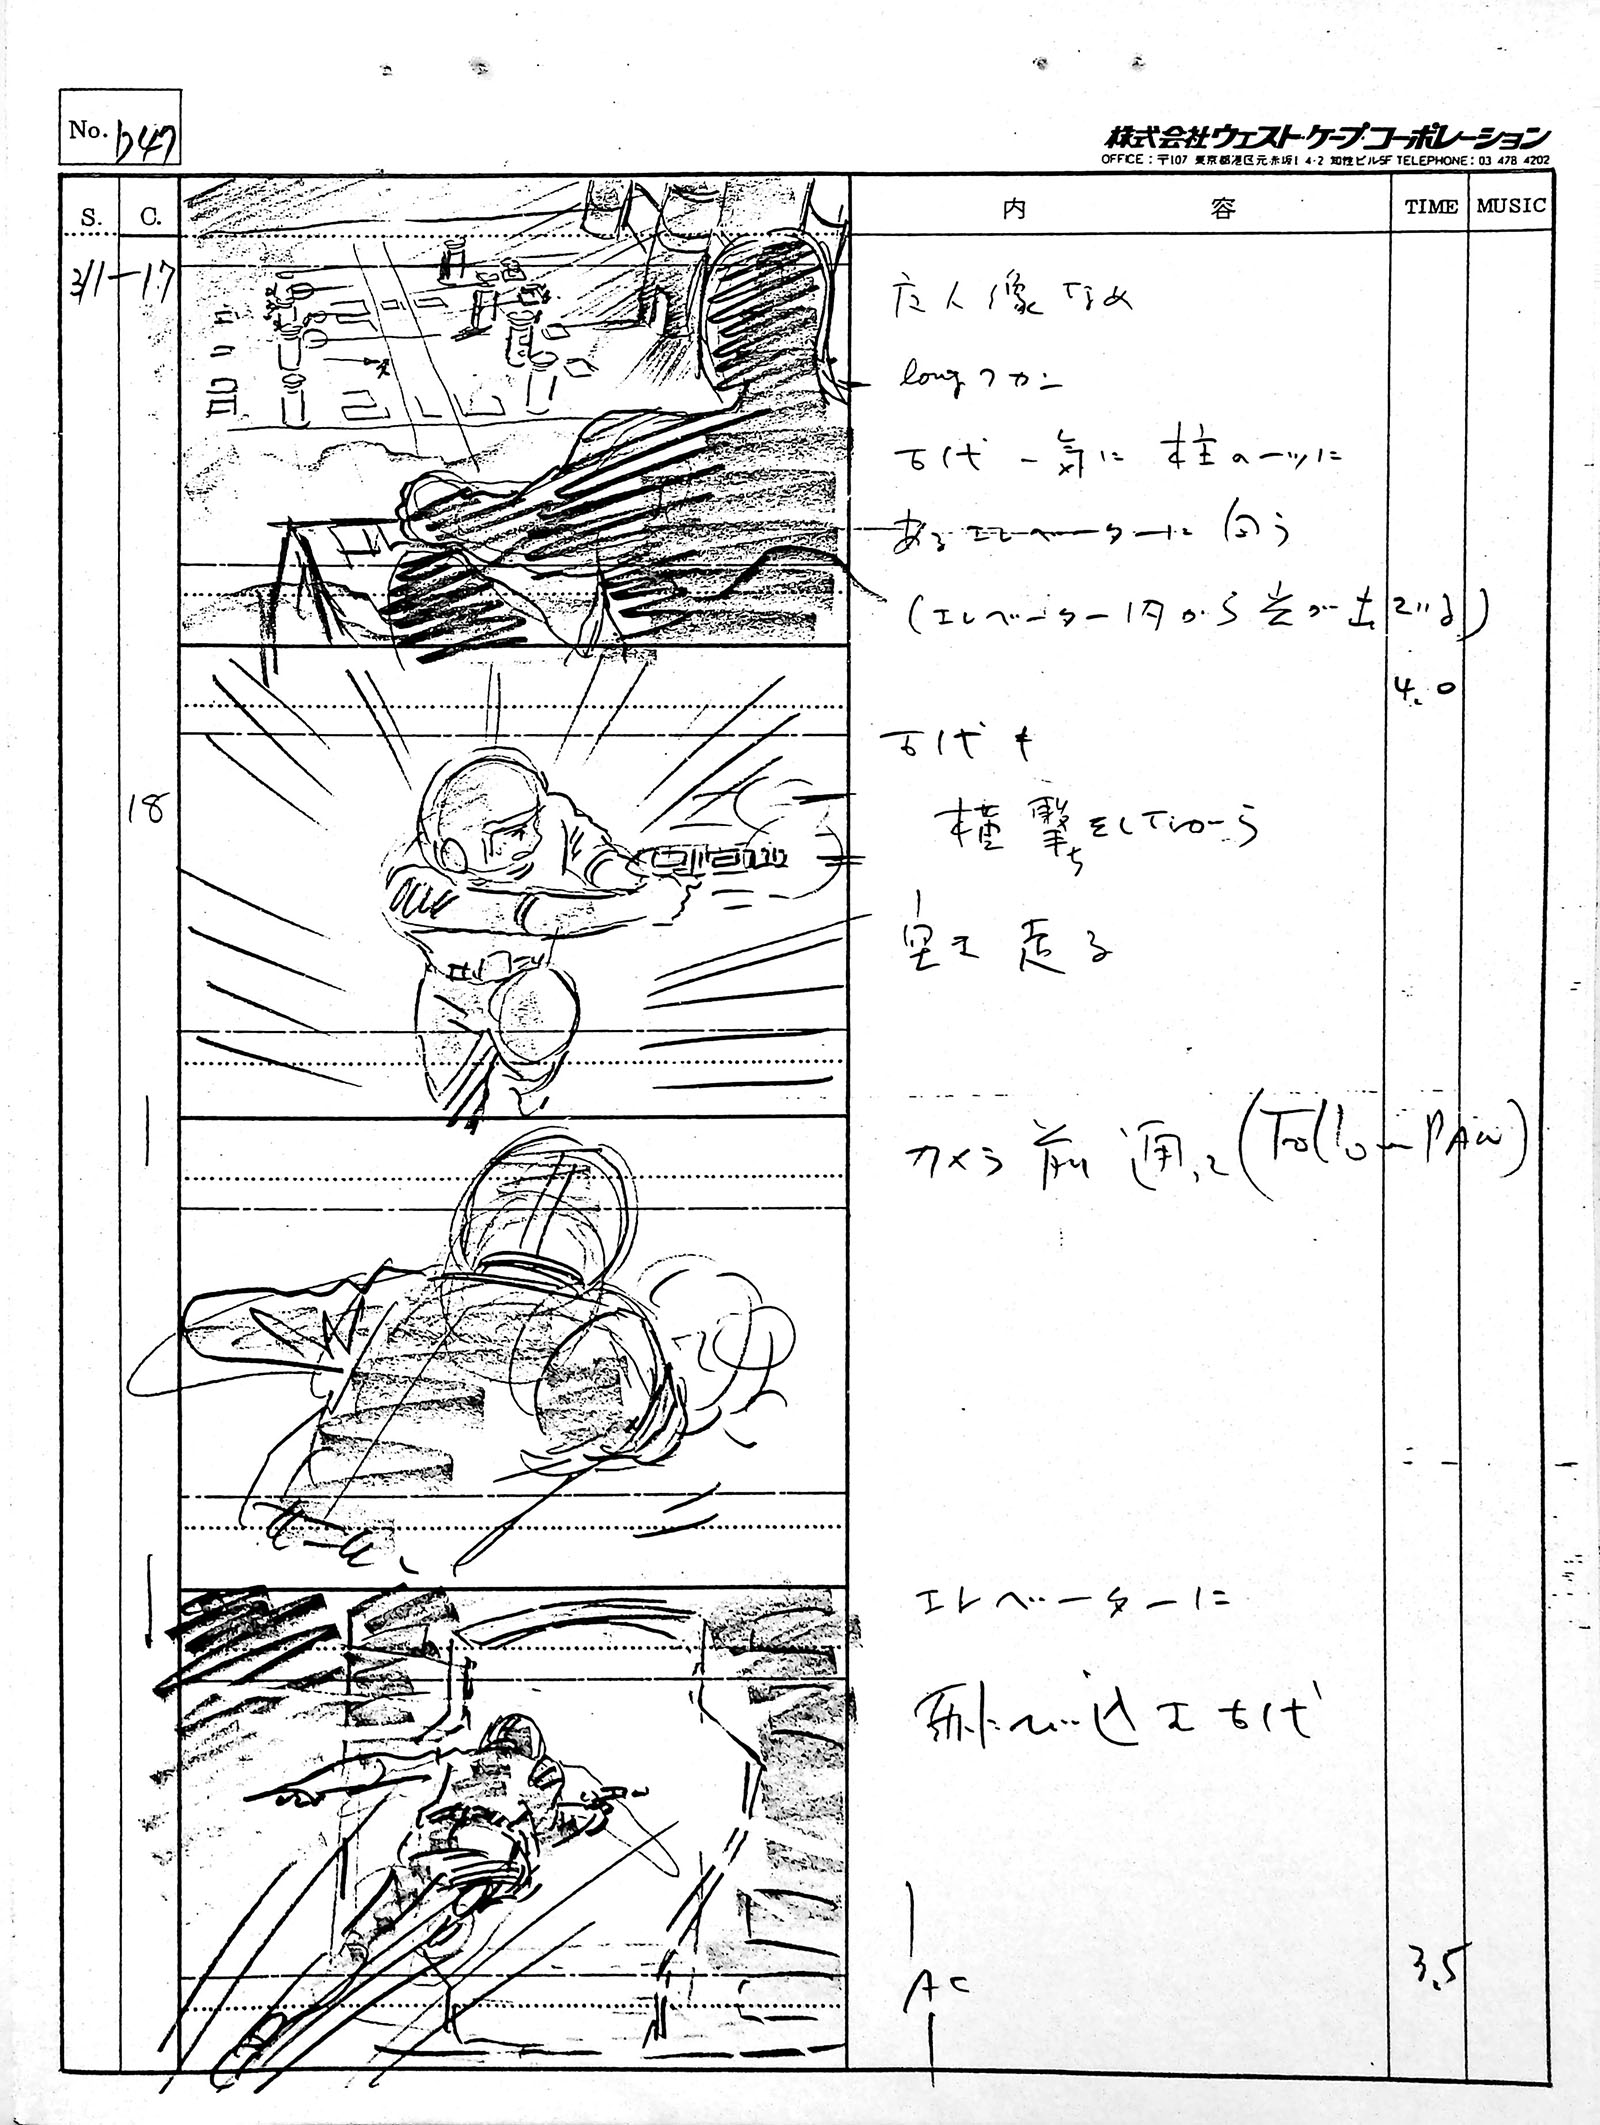 No. b47
株式会社ウェスト・ケープ・コーポレーション
OFFICE : 〒107 東京都港区元赤坂1 4-2 知性ビル5F TELEPHONE : 03 478 4202
S. C. 内 容 TIME MUSIC
311-17
巨人像なめ
longフカン
古代 一気に 柱の一ツに
あるエレベーターに向う
(エレベーター内から光が出ている)
4.0
18
古代も
横撃ちをしてから
奥え 走る
カメラ前通って (Follow PAN)
エレベーターに
飛び込む古代
AC
3.5